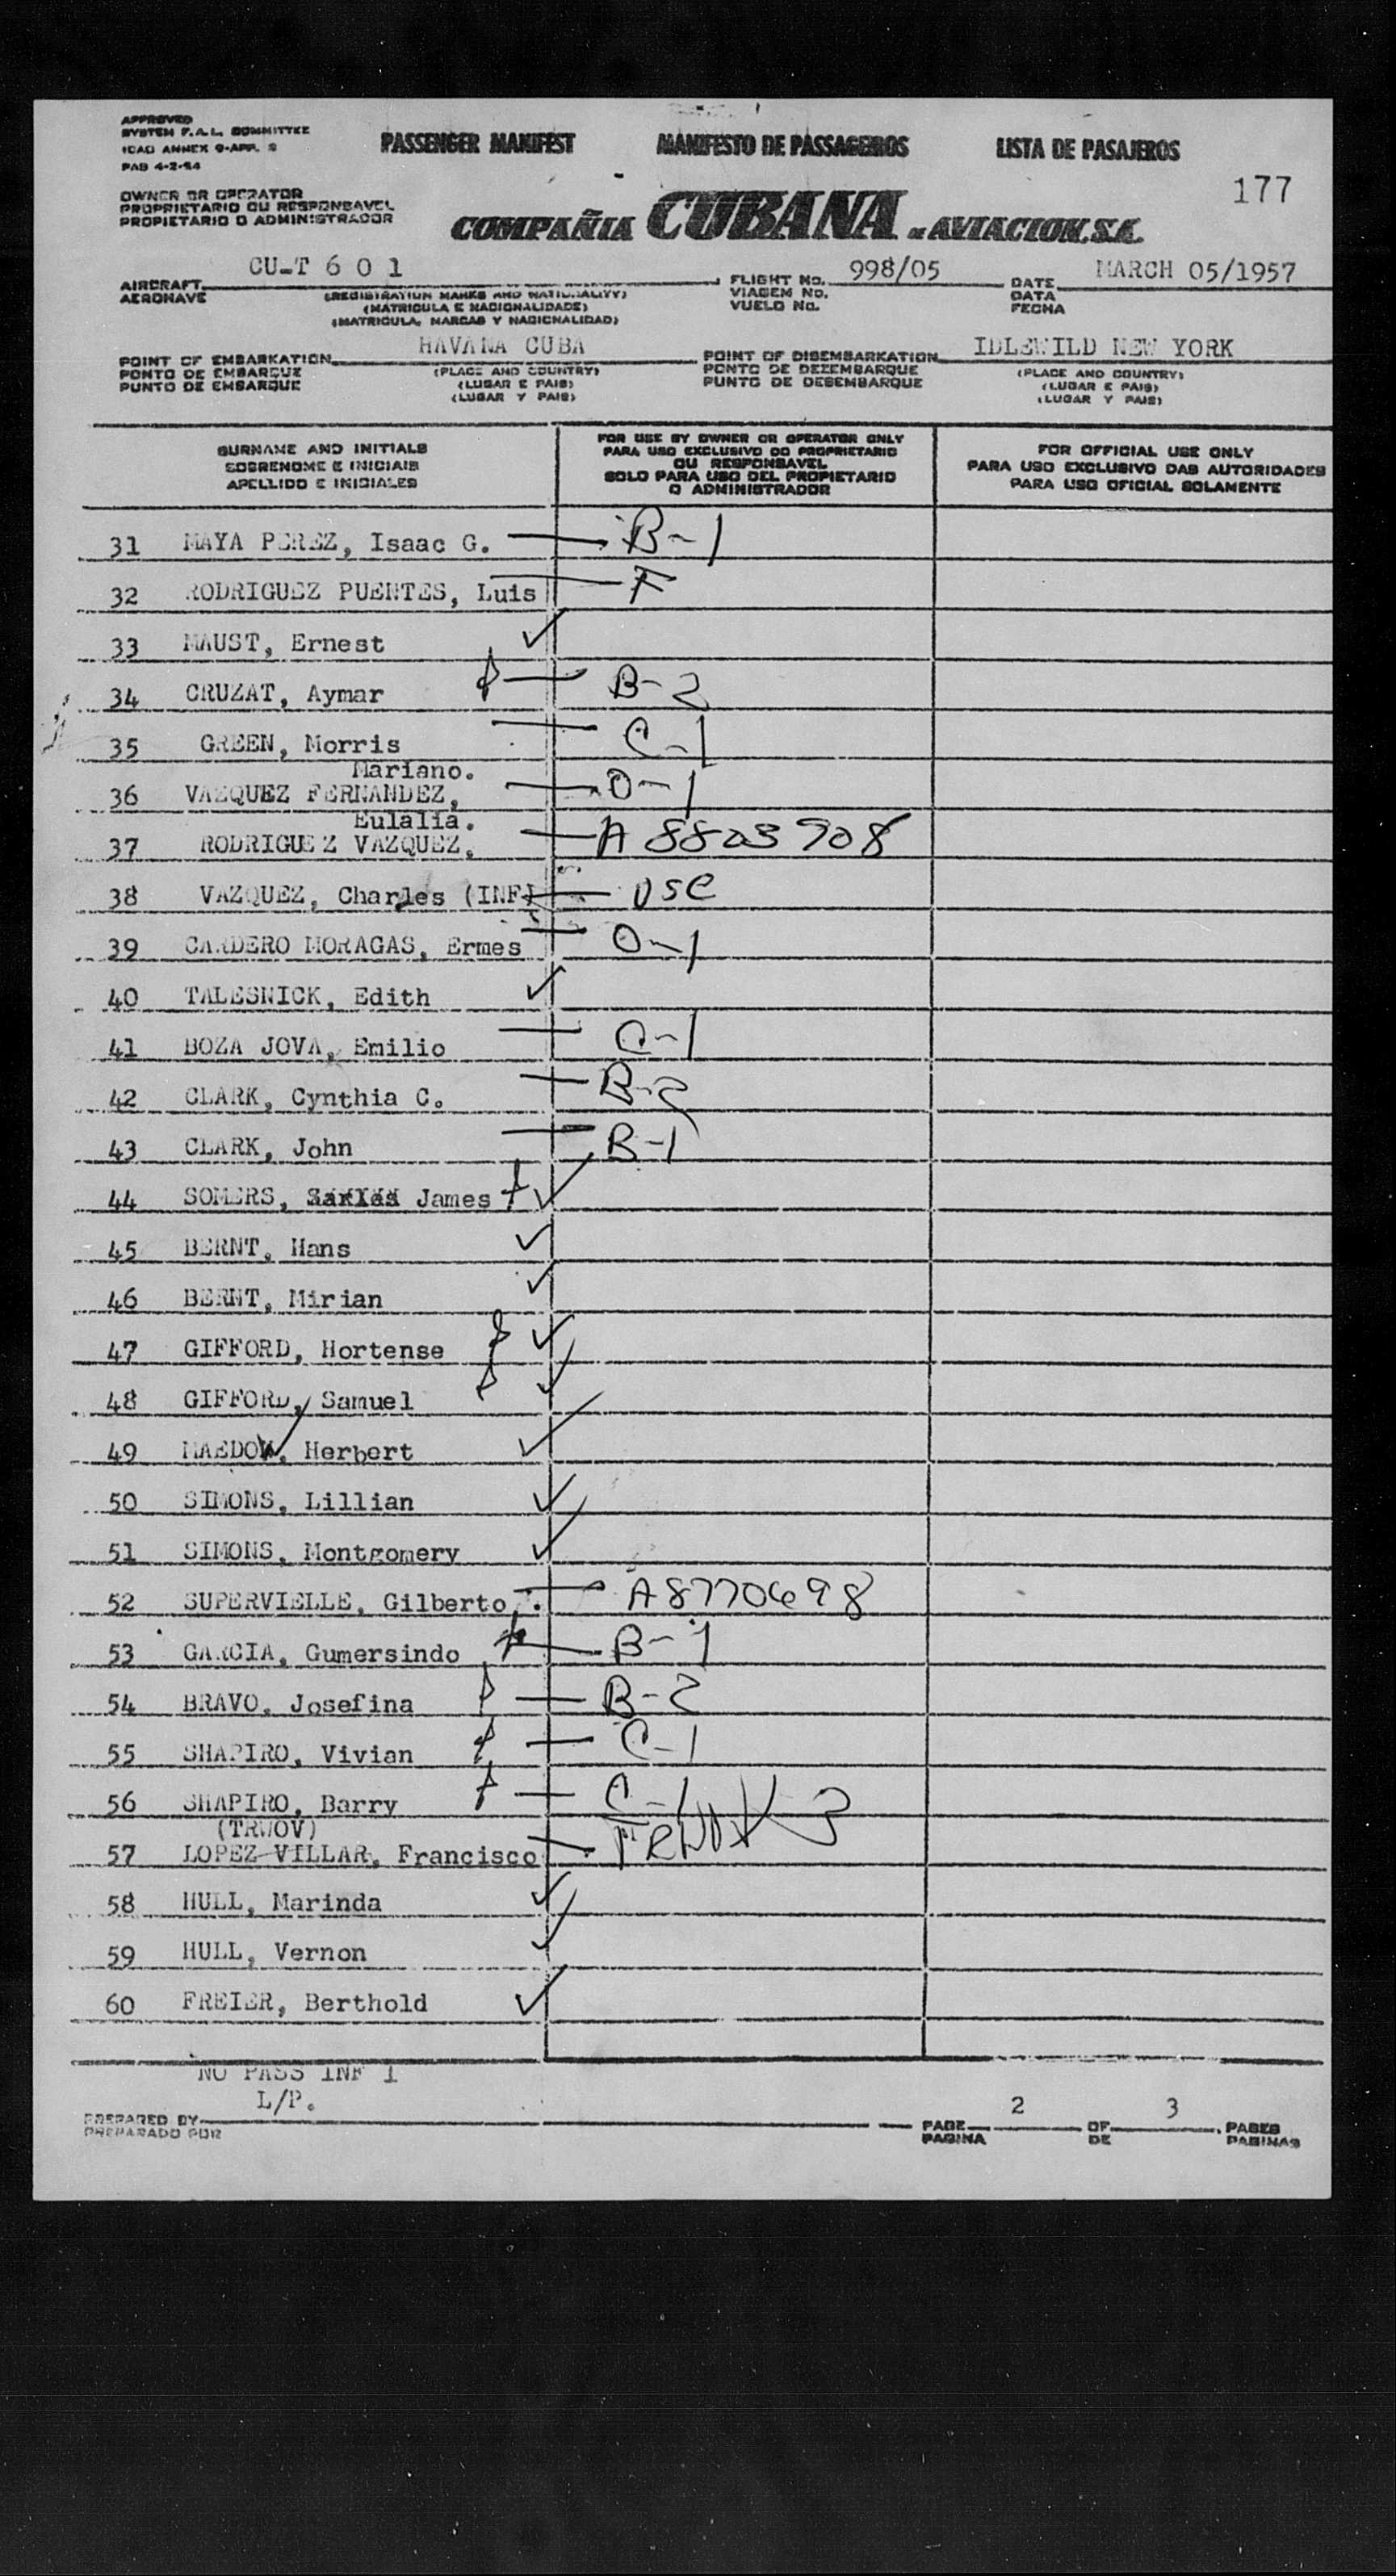 APPROVED
SYSTEM F.A.L. COMMITTEE
ICAO ANNEX 9-APP. 5
PAB 4-2-54
PASSENGER MANIFEST
MANIFESTO DE PASSAGEIROS
LISTA DE PASAJEROS
177
OWNER OR OPERATOR
PROPRIETARIO OU RESPONSAVEL
PROPIETARIO O ADMINISTRADOR
COMPAÑIA CUBANA DE AVIACION, S.A.
AIRCRAFT CU-T 6 0 1 FLIGHT No. 998/05 DATE MARCH 05/1957
AERONAVE (REGISTRATION MARKS AND NATIONALITY) VIAGEM No. DATA
(MATRICULA E NACIONALIDADE) VUELO No. FECHA
(MATRICULA, MARCAS Y NACIONALIDAD)
POINT OF EMBARKATION HAVANA CUBA POINT OF DISEMBARKATION IDLEWILD NEW YORK
PONTO DE EMBARQUE (PLACE AND COUNTRY) PONTO DE DEZEMBARQUE (PLACE AND COUNTRY)
PUNTO DE EMBARQUE (LUGAR E PAIS) PUNTO DE DESEMBARQUE (LUGAR E PAIS)
(LUGAR Y PAIS) (LUGAR Y PAIS)
SURNAME AND INITIALS
SOBRENOME E INICIAIS
APELLIDO E INICIALES
FOR USE BY OWNER OR OPERATOR ONLY
PARA USO EXCLUSIVO DO PROPRIETARIO
OU RESPONSAVEL
SOLO PARA USO DEL PROPIETARIO
O ADMINISTRADOR
FOR OFFICIAL USE ONLY
PARA USO EXCLUSIVO DAS AUTORIDADES
PARA USO OFICIAL SOLAMENTE
31 MAYA PEREZ, Isaac G. B-1
32 RODRIGUEZ PUENTES, Luis F
33 MAUST, Ernest
34 CRUZAT, Aymar B-2
35 GREEN, Morris C-1
Mariano.
36 VAZQUEZ FERNANDEZ, O-1
Eulalia.
37 RODRIGUEZ VAZQUEZ, A 8803908
38 VAZQUEZ, Charles (INF) USC
39 CARDERO MORAGAS, Ermes O-1
40 TALESNICK, Edith
41 BOZA JOVA, Emilio C-1
42 CLARK, Cynthia C. B-2
43 CLARK, John B-1
44 SOMERS, James
45 BERNT, Hans
46 BERNT, Mirian
47 GIFFORD, Hortense
48 GIFFORD, Samuel
49 MAEDOW, Herbert
50 SIMONS, Lillian
51 SIMONS, Montgomery
52 SUPERVIELLE, Gilberto, A8770698
53 GARCIA, Gumersindo B-1
54 BRAVO, Josefina B-2
55 SHAPIRO, Vivian C-1
56 SHAPIRO, Barry C-1
(TRWOV)
57 LOPEZ VILLAR, Francisco TRWOV 3
58 HULL, Marinda
59 HULL, Vernon
60 FREIER, Berthold
NO PASS INF 1
L/P.
PREPARED BY PAGE 2 OF 3 PAGES
PREPARADO POR PAGINA DE PAGINAS